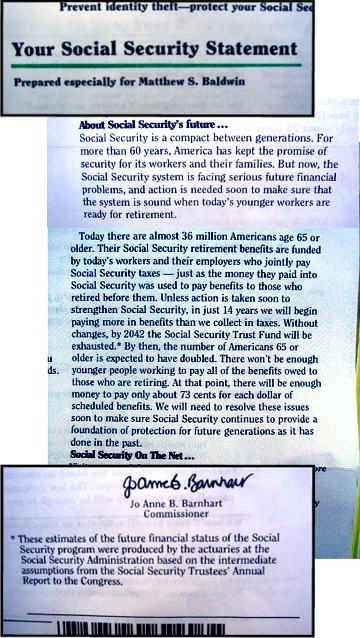 Prevent identity theft—protect your Social Sec
Your Social Security Statement
Prepared especially for Matthew S. Baldwin
About Social Security's future ...
Social Security is a compact between generations. For
more than 60 years, America has kept the promise of
security for its workers and their families. But now, the
Social Security system is facing serious future financial
problems, and action is needed soon to make sure that
the system is sound when today's younger workers are
ready for retirement.
Today there are almost 36 million Americans age 65 or
older. Their Social Security retirement benefits are funded
by today's workers and their employers who jointly pay
Social Security taxes — just as the money they paid into
Social Security was used to pay benefits to those who
retired before them. Unless action is taken soon to
strengthen Social Security, in just 14 years we will begin
paying more in benefits than we collect in taxes. Without
changes, by 2042 the Social Security Trust Fund will be
exhausted.* By then, the number of Americans 65 or
older is expected to have doubled. There won't be enough
younger people working to pay all of the benefits owed to
those who are retiring. At that point, there will be enough
money to pay only about 73 cents for each dollar of
scheduled benefits. We will need to resolve these issues
soon to make sure Social Security continues to provide a
foundation of protection for future generations as it has
done in the past.
Social Security On The Net...
u
ds.
ore
y
Jo Anne B. Barnhart
Jo Anne B. Barnhart
Commissioner
* These estimates of the future financial status of the Social
Security program were produced by the actuaries at the
Social Security Administration based on the intermediate
assumptions from the Social Security Trustees' Annual
Report to the Congress.